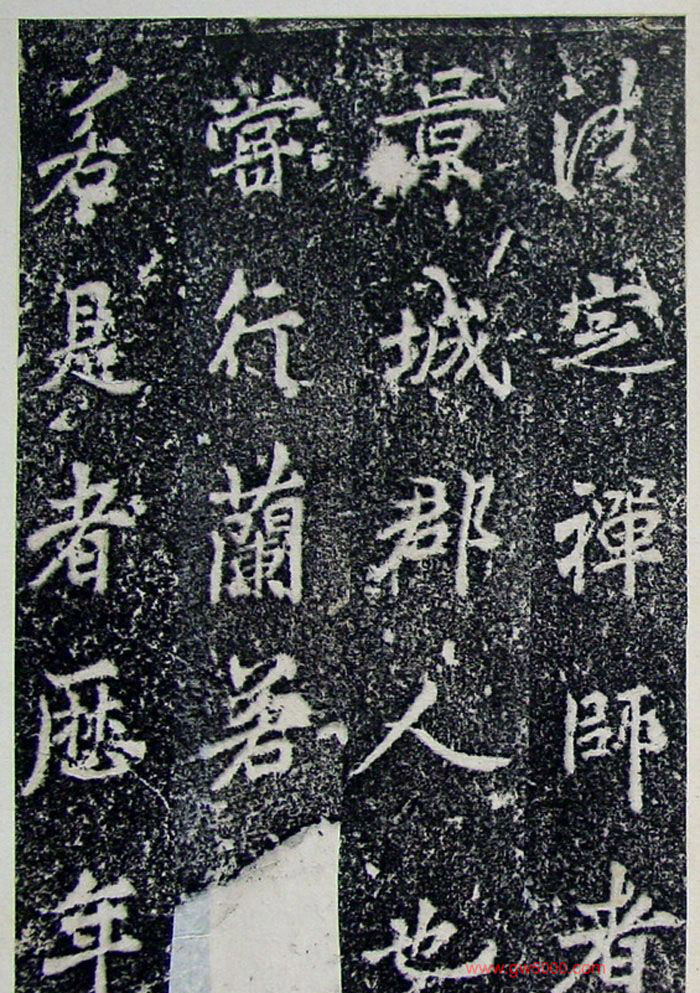 法定禪師者
景城郡人也
甞行蘭若
若是者歷年
www.gw5000.com